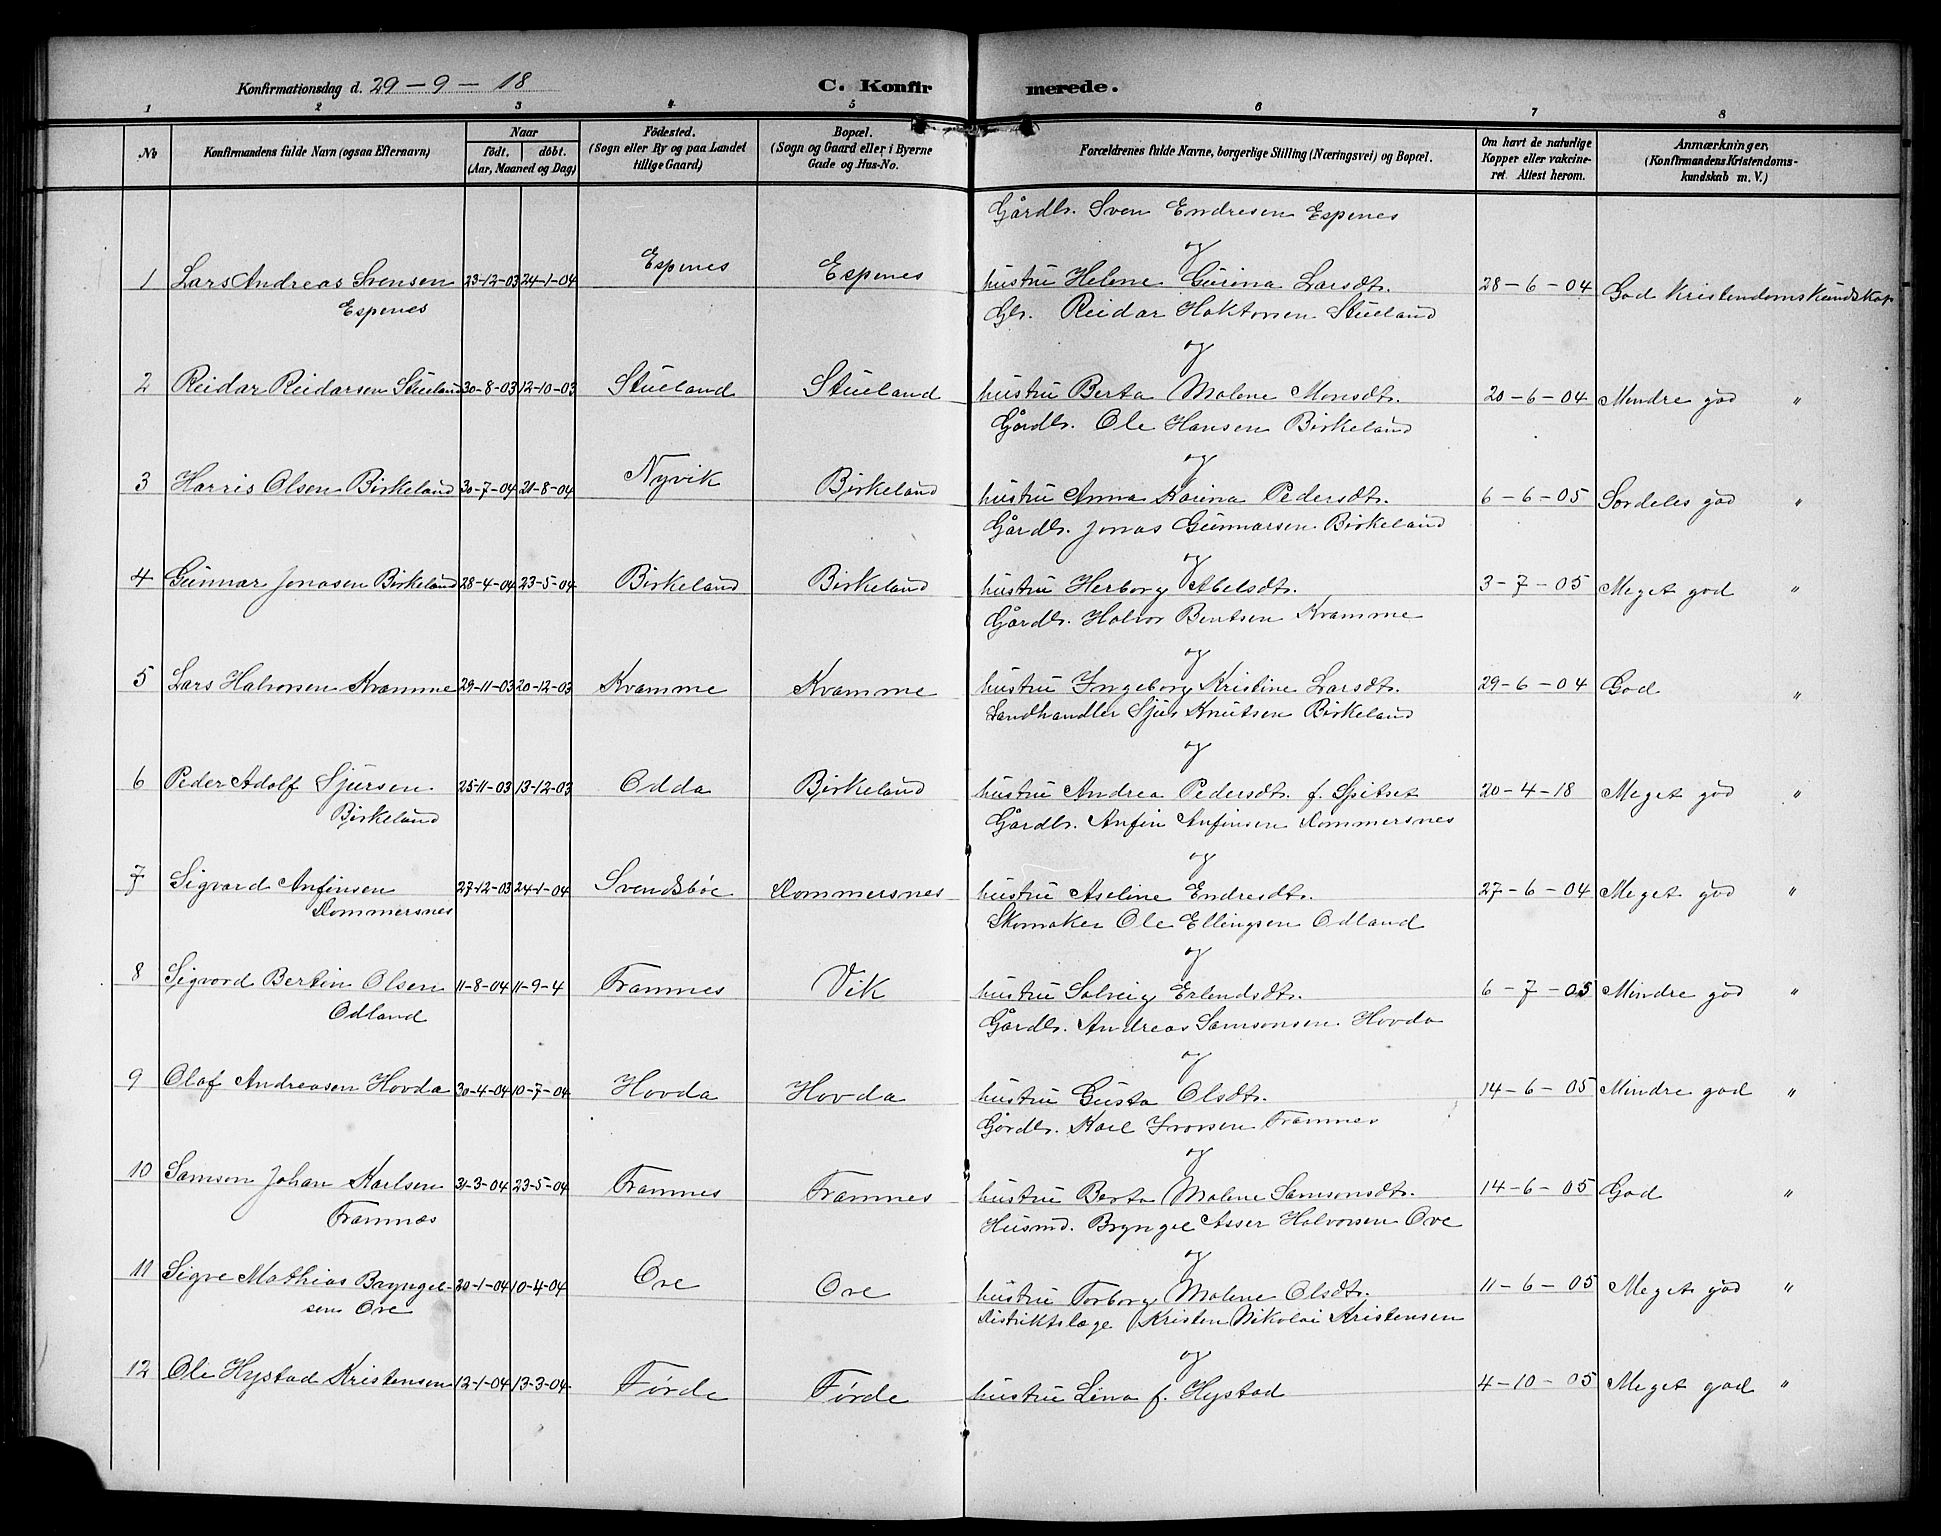 Konfirmationsdag d. 29 – 9 – 18 C. Konfirmerede.
1 2 3 4 5 6 7 8
№
Konfirmandens fulde Navn (ogsaa Efternavn)
Naar
födt. döbt.
(Aar, Maaned og Dag)
Födested.
(Sogn eller By og paa Landet
tillige Gaard)
Bopæl.
(Sogn og Gaard eller i Byerne
Gade og Hus-No.
Forældrenes fulde Navne, borgerlige Stilling (Næringsvei) og Bopæl.
Om havt de naturlige
Kopper eller vakcine-
ret. Attest herom.
Anmærkninger,
(Konfirmandens Kristendoms-
kundskab m. V.)
Gårdbr. Sven Endresen Espenes
og
1 Lars Andreas Svensen 23-12-03 24-1-04 Espenes Espenes hustru Helene Gurina Larsdtr. 28-6-04 God Kristendomskundskap
Espenes
Gbr. Reidar Haktorsen Stueland
og
2 Reidar Reidarsen Stueland 30-8-03 12-10-03 Stueland Stueland hustru Berta Malene Monsdtr. 20-6-04 Mindre god "
Gårdbr. Ole Hansen Birkeland
og
3 Harris Olsen Birkeland 30-7-04 21-8-04 Nyvik Birkeland hustru Anna Karina Pedersdtr. 6-6-05 Særdeles god "
Gårdbr. Jonas Gunnarsen Birkeland
og
4 Gunnar Jonasen Birkeland 28-4-04 23-5-04 Birkeland Birkeland hustru Herborg Abelsdtr. 3-7-05 Meget god "
Gårdbr. Halvor Bentsen Kvamme
og
5 Lars Halvorsen Kvamme 29-11-03 20-12-03 Kvamme Kvamme hustru Ingeborg Kristine Larsdtr. 29-6-04 God "
Landhandler Sjur Knutsen Birkeland
og
6 Peder Adolf Sjursen 25-11-03 13-12-03 Odda Birkeland hustru Andrea Pedersdtr. f. Spitset 20-4-18 Meget god "
Birkeland
Gårdbr. Anfin Anfinsen Dommersnes
og
7 Sigvard Anfinsen 27-12-03 24-1-04 Svendsbøe Dommersnes hustru Aseline Endresdtr. 27-6-04 Meget god "
Dommersnes
Skomaker Ole Ellingsen Odland
og
8 Sigvard Bertin Olsen 11-8-04 11-9-4 Framnes Vik hustru Solveig Erlendsdtr. 6-7-05 Mindre god "
Odland
Gårdbr. Andreas Samsonsen Hovda
og
9 Olaf Andreasen Hovda 30-4-04 10-7-04 Hovda Hovda hustru Gusta Olsdtr. 14-6-05 Mindre god "
Gårdbr. Karl Ivarsen Framnes
og
10 Samson Johan Karlsen 31-3-04 23-5-04 Framnes Framnes hustru Berta Malene Samsonsdtr. 14-6-05 God "
Framnæs
Husmd. Bryngel Asser Halvorsen Ove
og
11 Sigve Mathias Bryngel- 20-1-04 10-4-04 Ove Ove hustru Torborg Malene Olsdtr. 11-6-05 Meget god "
sen Ove
Distriktslæge Kristen Nikolai Kristensen
og
12 Ole Hystad Kristensen 12-1-04 13-3-04 Førde Førde hustru Lina f. Hystad 4-10-05 Meget god "